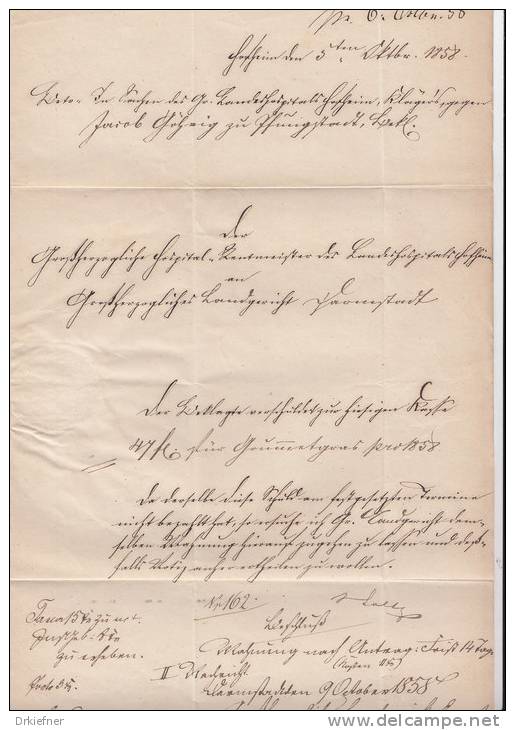 Pr. 6. Octbr. 58
Hofheim den 5ten Oktbr. 1858.
Betr. In Sachen des Gr. Landeshospitals Hofheim, Klägers, gegen
Jacob Göhrig zu Pfungstadt, Bekl.
Der
Großherzogliche Hospital-Rentmeister des Landeshospitals Hofheim
an
Großherzogliches Landgericht Darmstadt
Der Beklagte verschuldet zur hiesigen Kasse
47 fl. für Grummetgras pro 1858
Da derselbe diese Schuld am festgesetzten Termine
nicht bezahlt hat, so ersuche ich Gr. Landgericht dem-
selben Mahnung hierauf zugehen zu lassen und deß-
falls Notiz anher ertheilen zu wollen.
No 162.
Beschluß
zu erheben.
Mahnung nach Antrag: Frist 14 Tage
II Nachricht
Darmstadt den 9 October 1858
drkiefner
www.delcampe.net